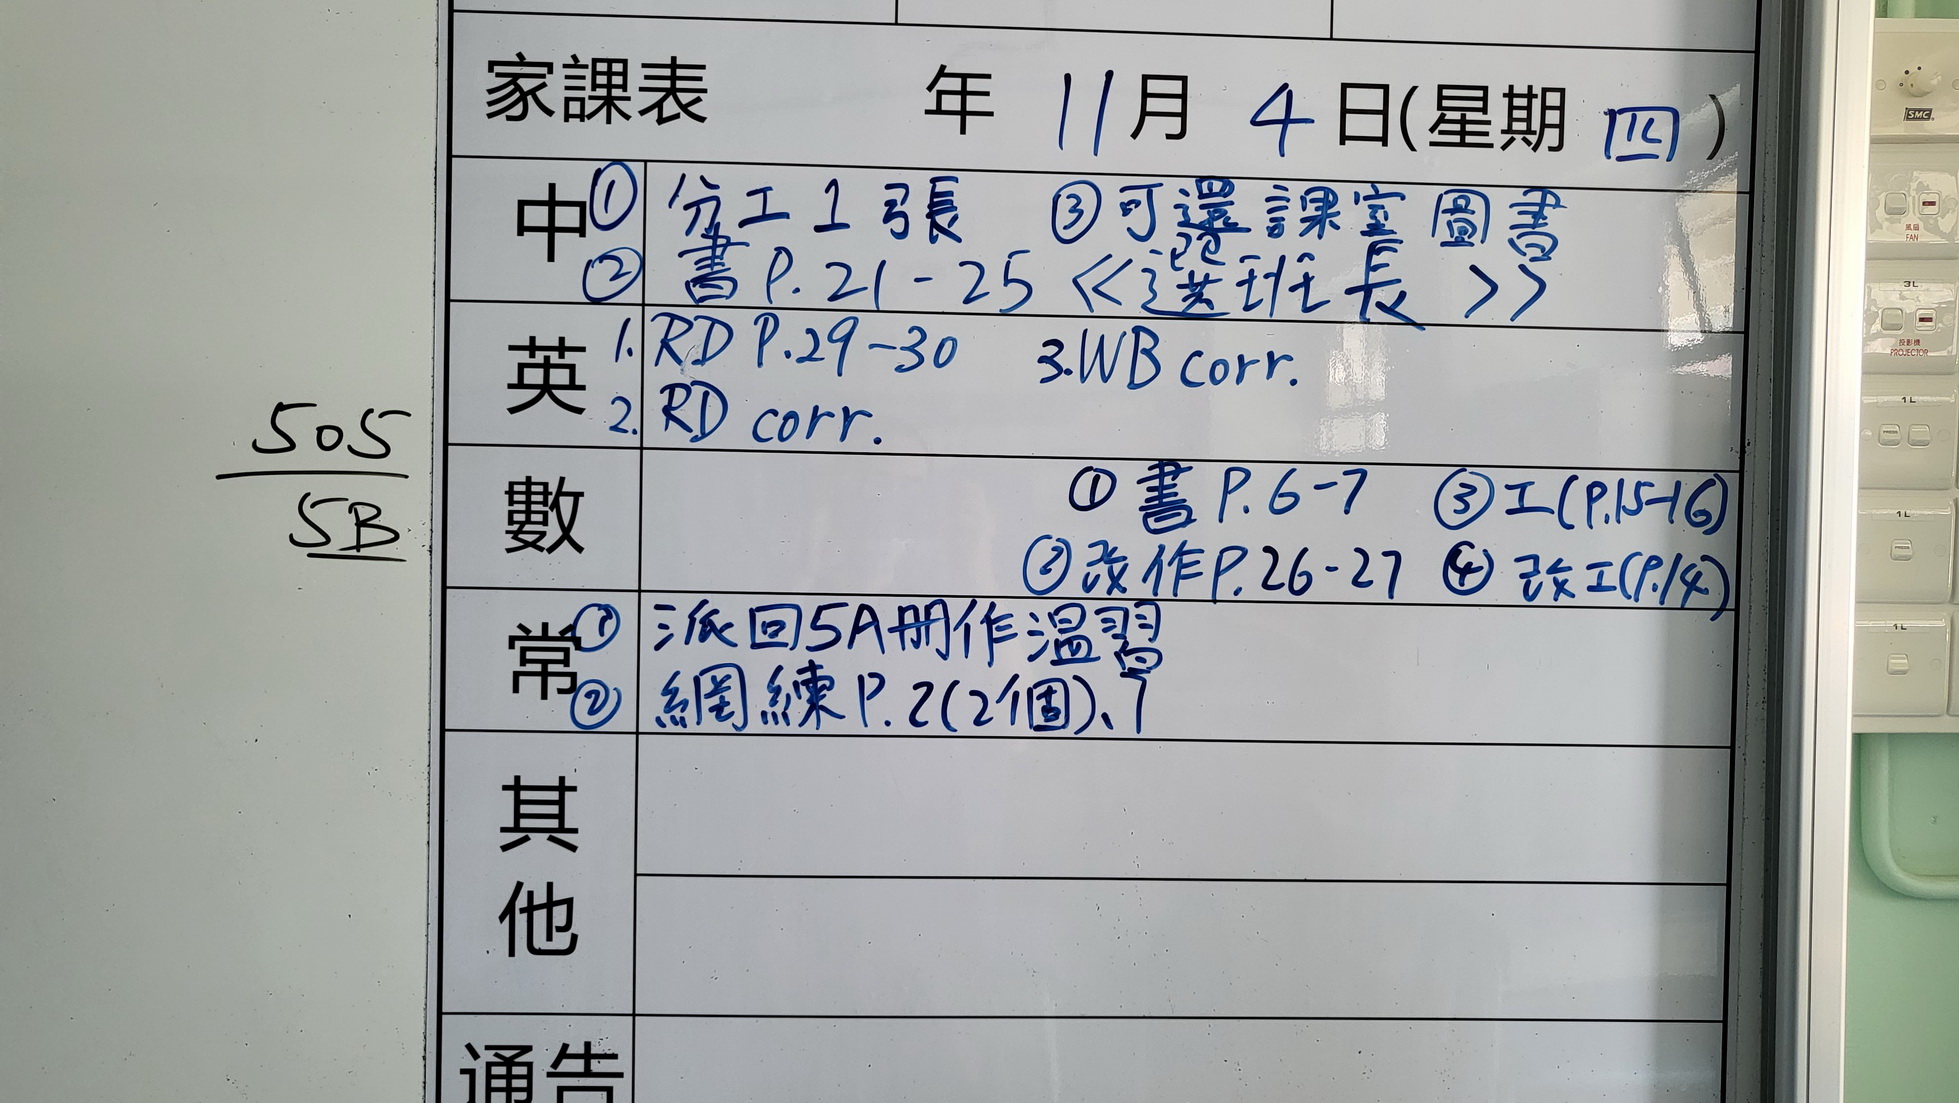 家課表 年 11月 4日(星期 四)
中 ① 分工1張 ③可還課室圖書
② 書P.21-25 <<選班長>>
英 1. RD P.29-30 3.WB corr.
2. RD corr.
數 ① 書P.6-7 ③工(P.15-16)
② 改作P.26-27 ④ 改工(P.14)
常 ① 派回5A冊作溫習
② 網練P.2(2個)、7
其他
通告
505
5B
SMC
風扇
FAN
3L
投影機
PROJECTOR
1L
1L
1L